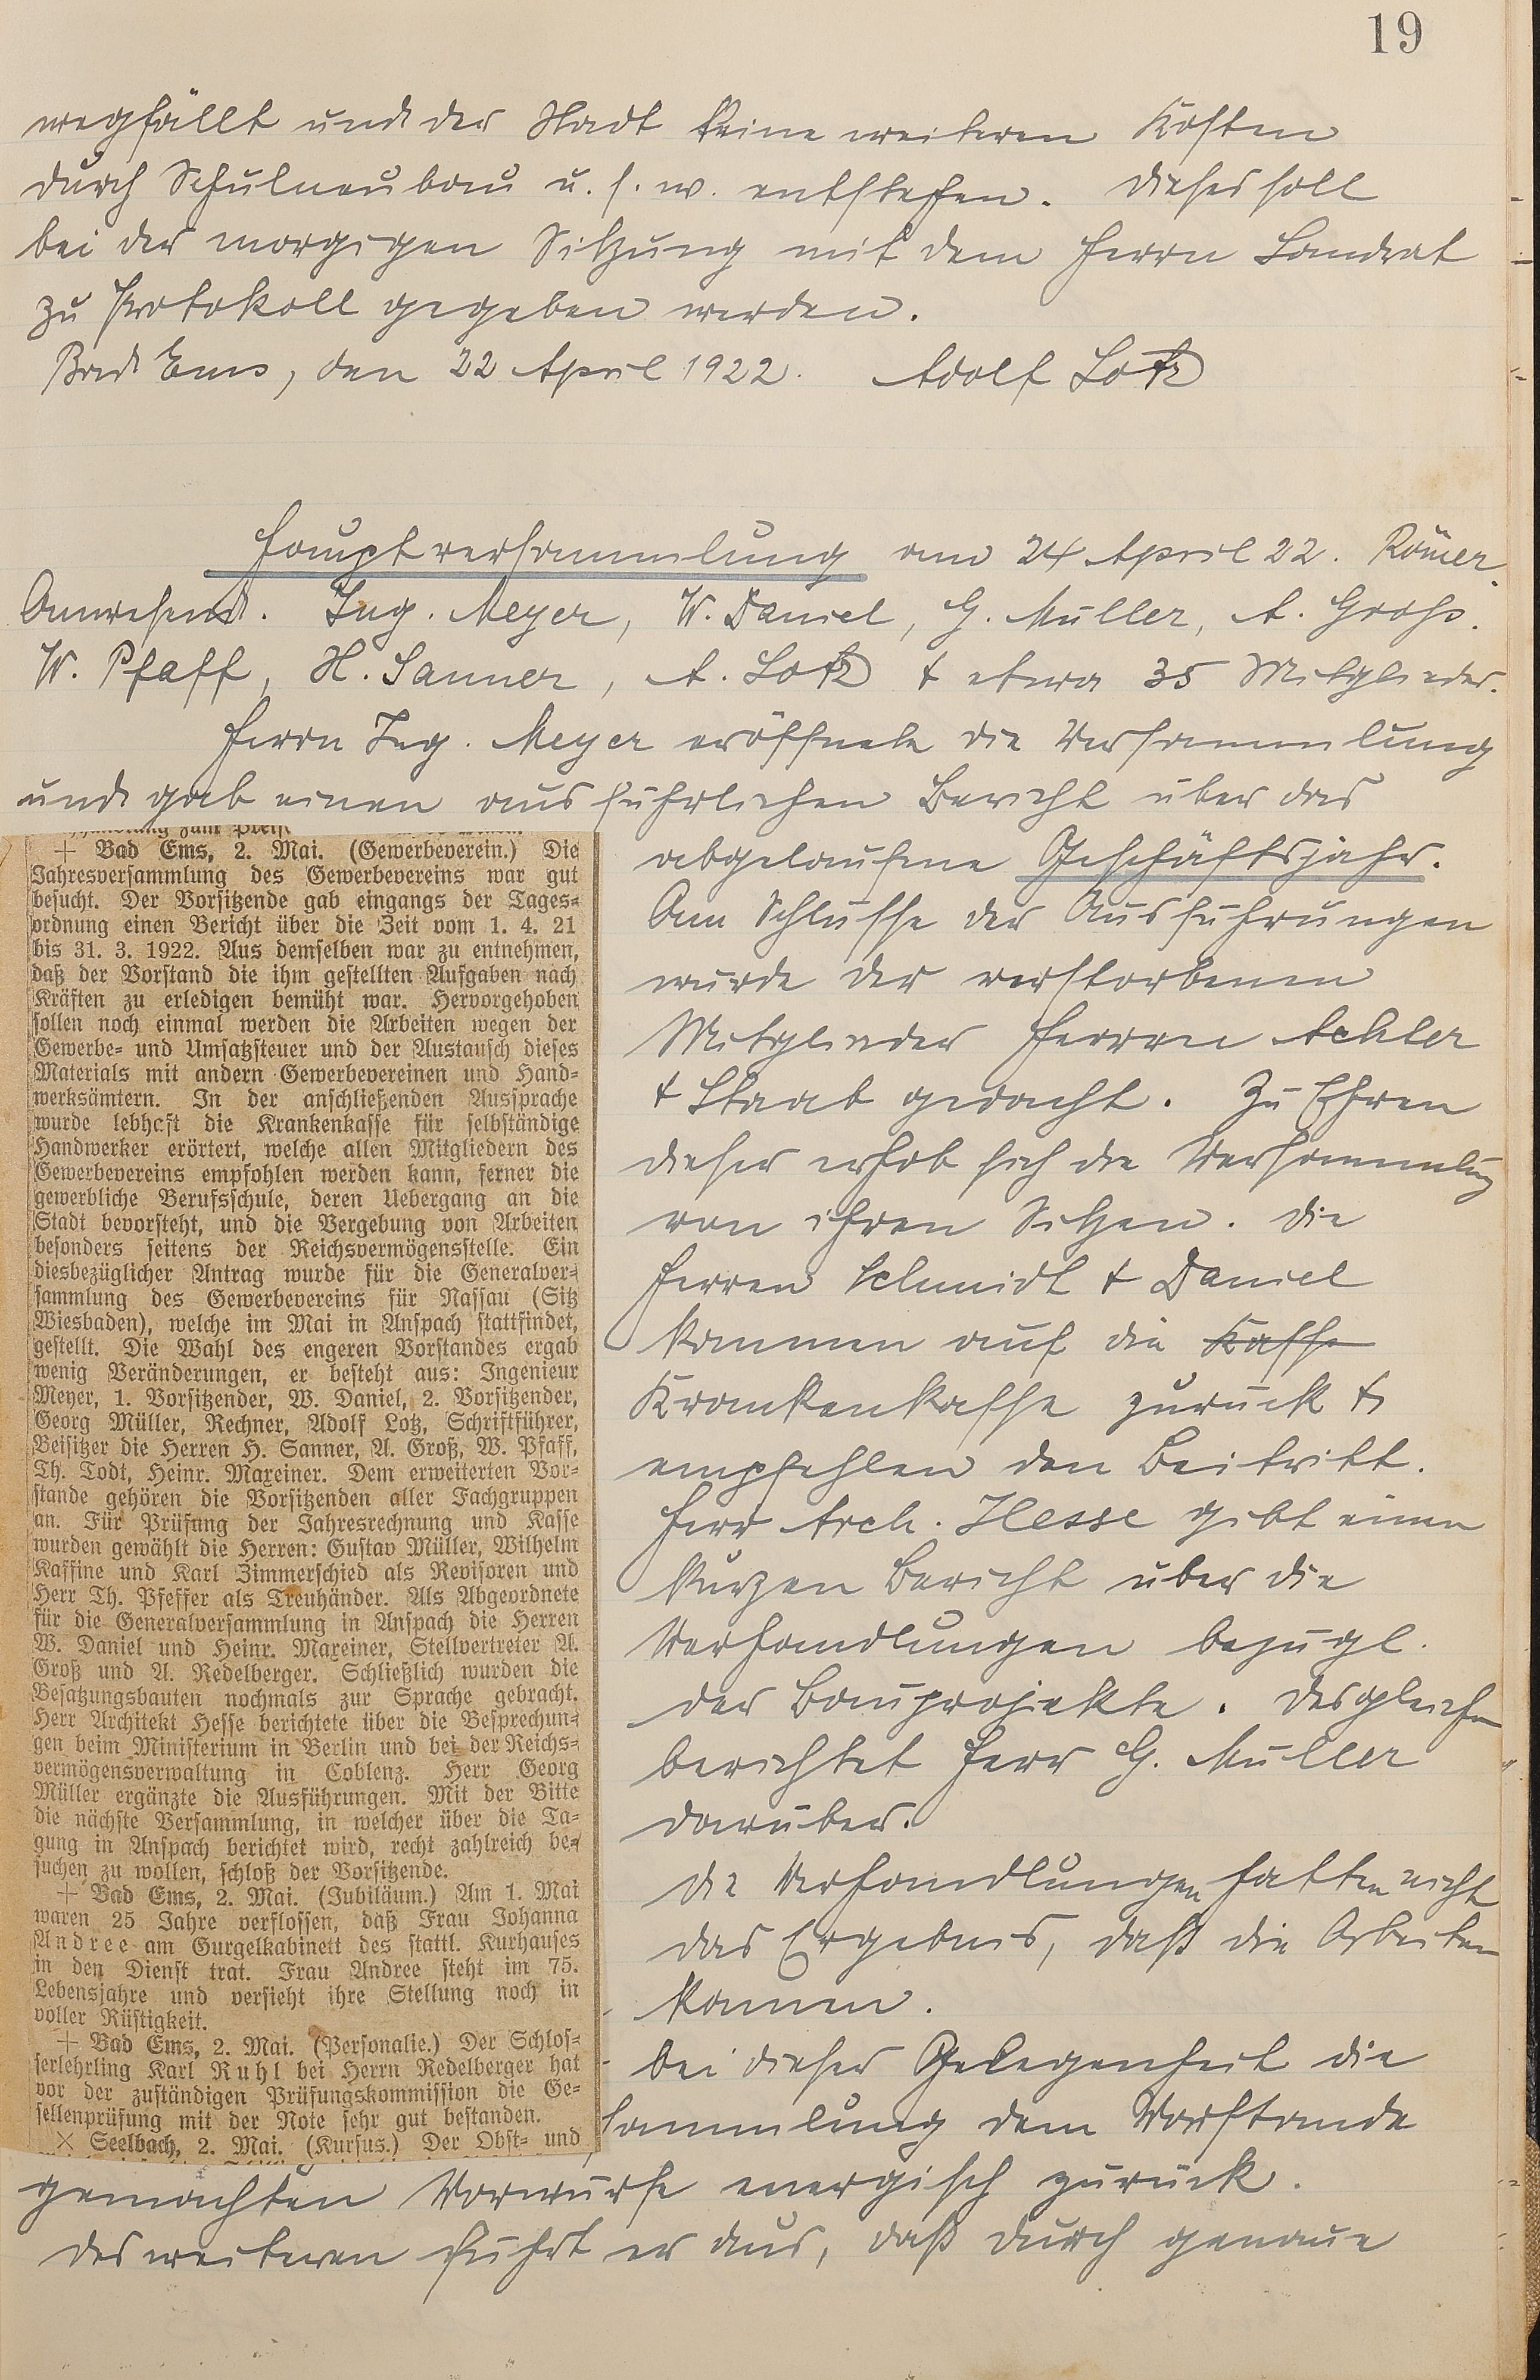 19
wegfällt und der Stadt keine weiteren Kosten
durch Schulneubau u. s. w. entstehen. Dieses soll
bei der morgigen Sitzung mit dem Herrn Landrat
zu Protokoll gegeben werden.
Bad Ems, den 22 April 1922. Adolf Lotz
Hauptversammlung am 24 April 22. Römer.
Anwesend. Ing. Meyer, W. Daniel, G. Müller, A. Groß.
W. Pfaff, H. Sanner, A. Lotz + etwa 35 Mitglieder.
Herrn Ing. Meyer eröffnete die Versammlung
und gab einen ausführlichen Bericht über das
abgelaufene Geschäftsjahr.
Am Schlusse der Ausführungen
wurde der verstorbenen
Mitglieder Herren Achler
+ Staab gedacht. Zu Ehren
dieser erhob sich die Versammlung
von ihren Sitzen. Die
Herren Schmidt + Daniel
kommen auf die Kasse
Krankenkasse zurück +
empfehlen den Beitritt.
Herr Arch. Hesse gibt einen
kurzen Bericht über die
Verhandlungen bezügl.
der Bauprojekte. Desgleichen
berichtet Herr G. Müller
darüber.
Die Verhandlungen hatten nicht
das Ergebnis, daß die Arbeiten
kamen.
bei dieser Gelegenheit die
sammlung dem Vorstande
gemachten Vorwürfe energisch zurück.
Des weiteren führt er aus, daß durch genaue
+ Bad Ems, 2. Mai. (Gewerbeverein.) Die
Jahresversammlung des Gewerbevereins war gut
besucht. Der Vorsitzende gab eingangs der Tages-
ordnung einen Bericht über die Zeit vom 1. 4. 21
bis 31. 3. 1922. Aus demselben war zu entnehmen,
daß der Vorstand die ihm gestellten Aufgaben nach
Kräften zu erledigen bemüht war. Hervorgehoben
sollen noch einmal werden die Arbeiten wegen der
Gewerbe- und Umsatzsteuer und der Austausch dieses
Materials mit andern Gewerbevereinen und Hand-
werksämtern. In der anschließenden Aussprache
wurde lebhaft die Krankenkasse für selbständige
Handwerker erörtert, welche allen Mitgliedern des
Gewerbevereins empfohlen werden kann, ferner die
gewerbliche Berufsschule, deren Uebergang an die
Stadt bevorsteht, und die Vergebung von Arbeiten
besonders seitens der Reichsvermögensstelle. Ein
diesbezüglicher Antrag wurde für die Generalver-
sammlung des Gewerbevereins für Nassau (Sitz
Wiesbaden), welche im Mai in Anspach stattfindet,
gestellt. Die Wahl des engeren Vorstandes ergab
wenig Veränderungen, er besteht aus: Ingenieur
Meyer, 1. Vorsitzender, W. Daniel, 2. Vorsitzender,
Georg Müller, Rechner, Adolf Lotz, Schriftführer,
Beisitzer die Herren H. Sanner, A. Groß, W. Pfaff,
Th. Todt, Heinr. Maxeiner. Dem erweiterten Vor-
stande gehören die Vorsitzenden aller Fachgruppen
an. Für Prüfung der Jahresrechnung und Kasse
wurden gewählt die Herren: Gustav Müller, Wilhelm
Kaffine und Karl Zimmerschied als Revisoren und
Herr Th. Pfeffer als Treuhänder. Als Abgeordnete
für die Generalversammlung in Anspach die Herren
W. Daniel und Heinr. Maxeiner, Stellvertreter A.
Groß und A. Redelberger. Schließlich wurden die
Besatzungsbauten nochmals zur Sprache gebracht.
Herr Architekt Hesse berichtete über die Besprechun-
gen beim Ministerium in Berlin und bei der Reichs-
vermögensverwaltung in Coblenz. Herr Georg
Müller ergänzte die Ausführungen. Mit der Bitte
die nächste Versammlung, in welcher über die Ta-
gung in Anspach berichtet wird, recht zahlreich be-
suchen zu wollen, schloß der Vorsitzende.
+ Bad Ems, 2. Mai. (Jubiläum.) Am 1. Mai
waren 25 Jahre verflossen, daß Frau Johanna
Andree am Gurgelkabinett des staatl. Kurhauses
in den Dienst trat. Frau Andree steht im 75.
Lebensjahre und versieht ihre Stellung noch in
voller Rüstigkeit.
+ Bad Ems, 2. Mai. (Personalie.) Der Schlos-
serlehrling Karl Ruhl bei Herrn Redelberger hat
vor der zuständigen Prüfungskommission die Ge-
sellenprüfung mit der Note sehr gut bestanden.
× Seelbach, 2. Mai. (Kursus.) Der Obst- und